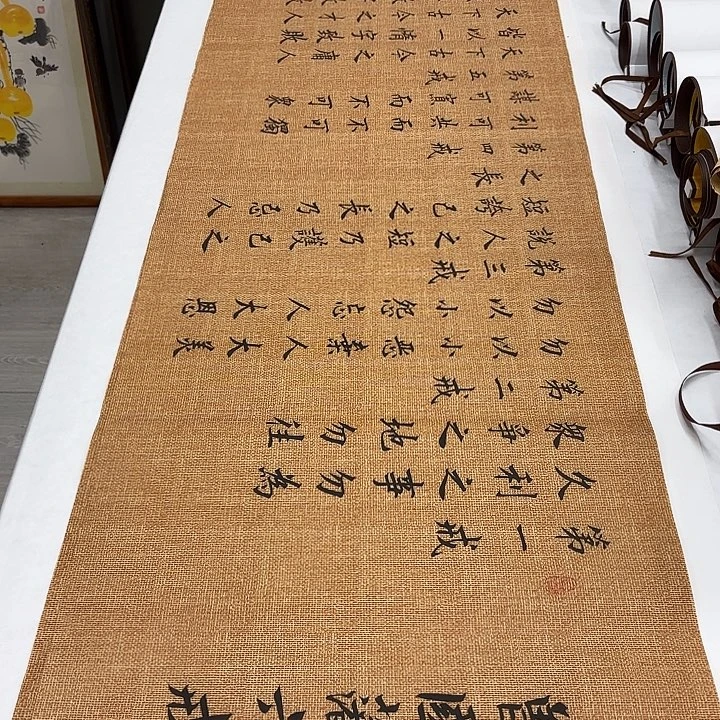 曾國藩六戒
第一戒
久利之事勿為
衆爭之地勿往
第二戒
勿以小惡棄人大美
勿以小怨忘人大恩
第三戒
說人之短乃護己之
短誇己之長乃忌人
之長
第四戒
利可共而不可獨
謀可寡而不可衆
第五戒
天下古今之庸人
皆以一惰字致敗
天下古今之才人